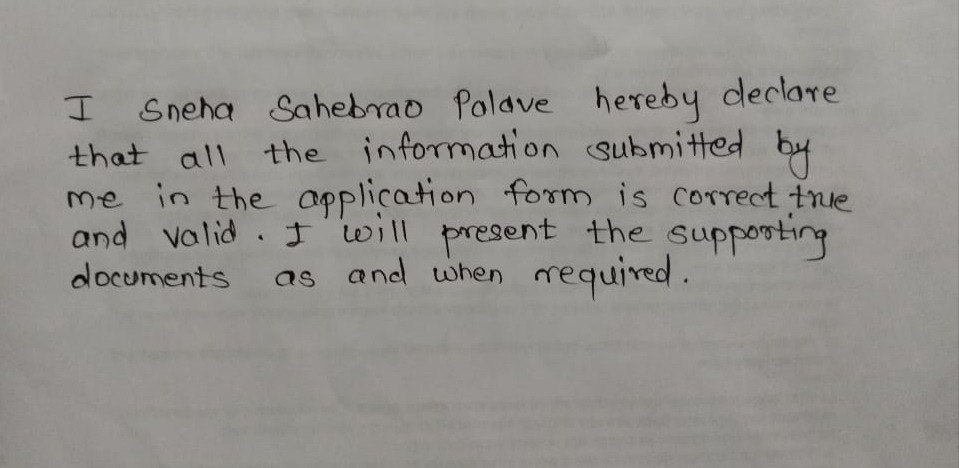 I Sneha Sahebrao Palave hereby declare
that all the information submitted by
me in the application form is correct true
and valid. I will present the supporting
documents as and when required.